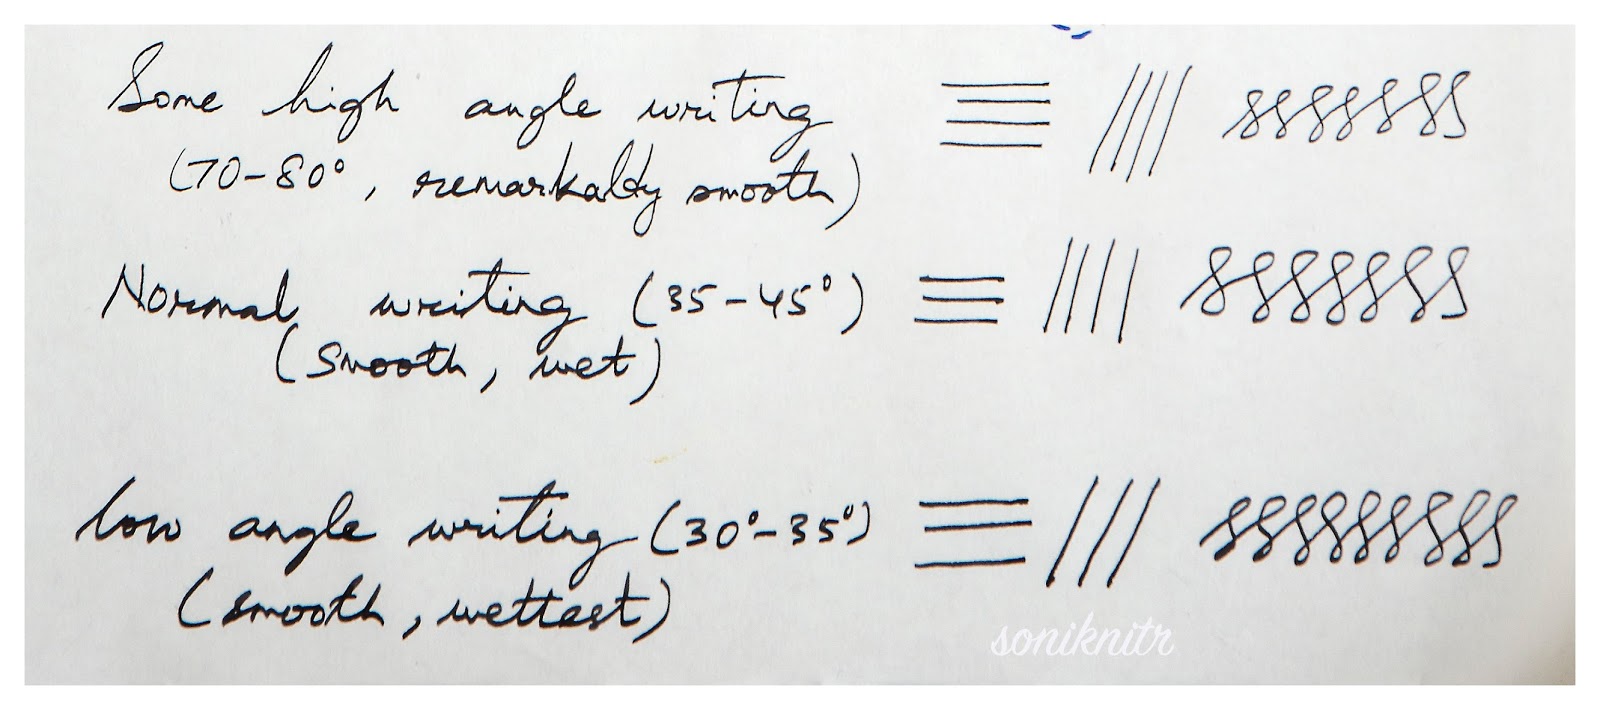 Some high angle writing
(70-80°, remarkably smooth)
Normal writing (35-45°)
(Smooth, wet)
Low angle writing (30°-35°)
(smooth, wettest)
soniknitr